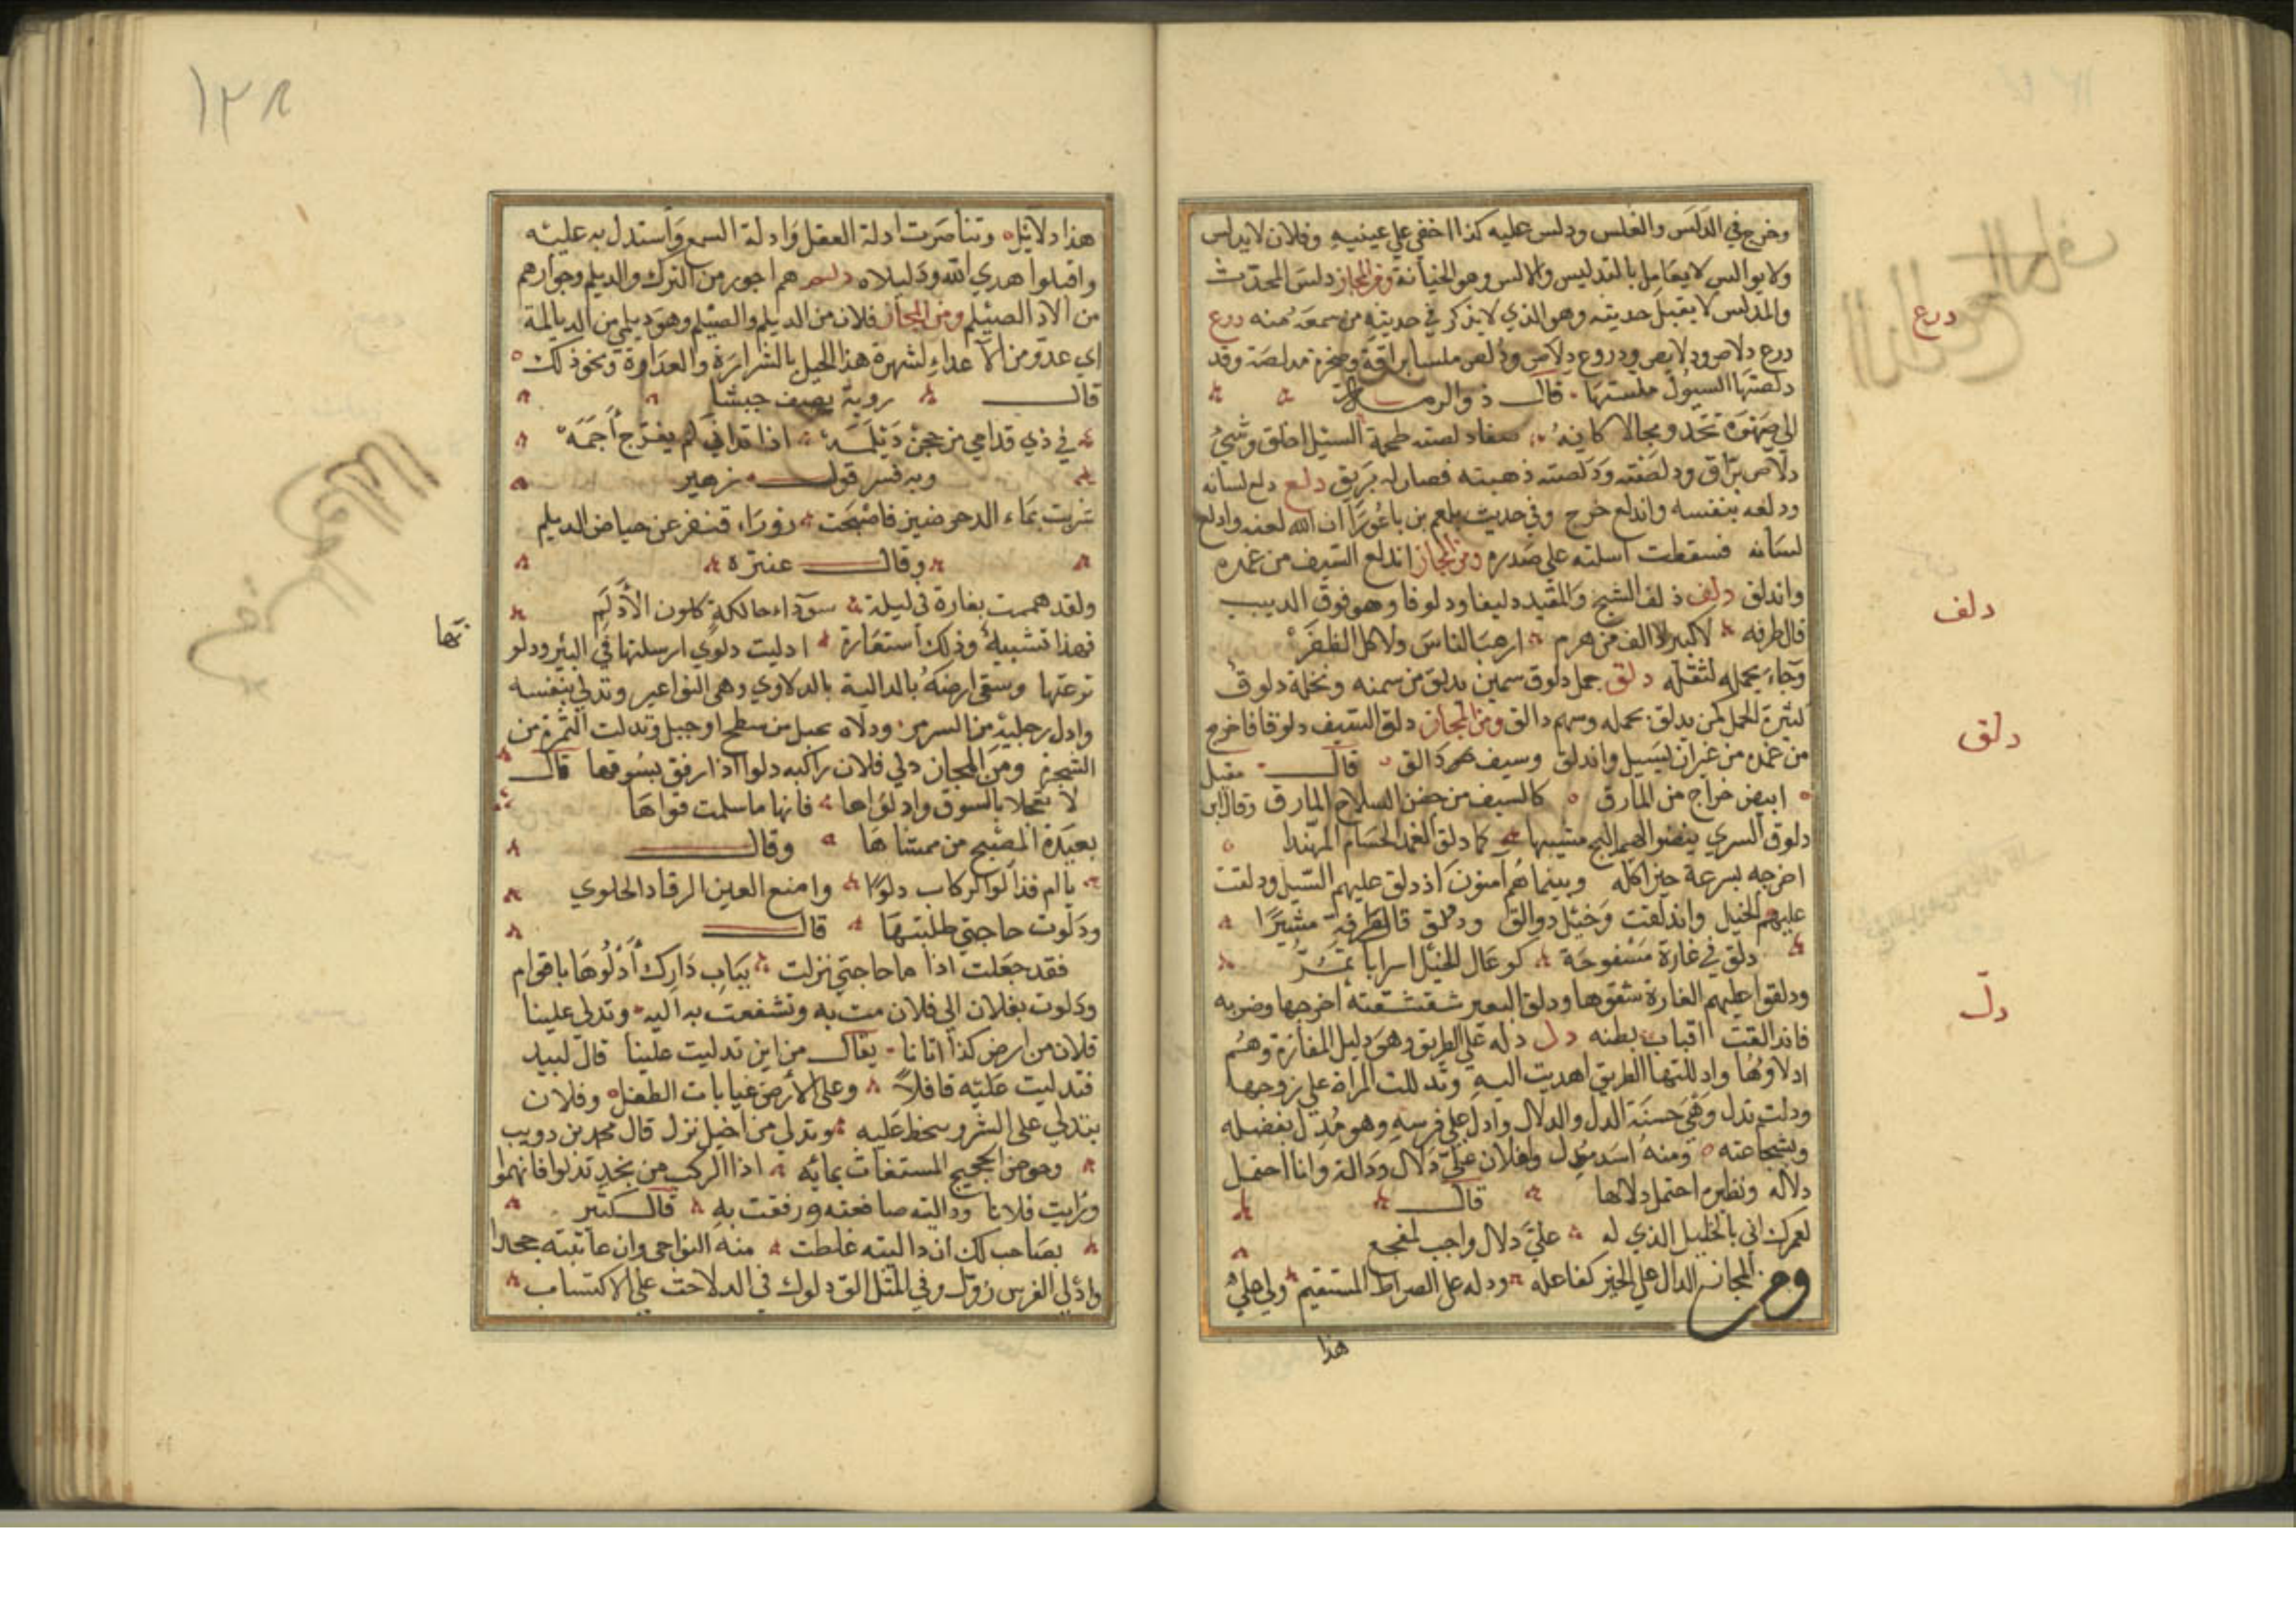 وخرج في الدلس والغلس ودلس عليه كذا اخفي علي عينيه وفلان لا يدلس
ولا يوالس لا يعامل بالتدليس والالس وهو الخيانة ومن المجاز دلس المحدث
والمدلس لا يقبل حديثه وهو الذي لا يذكر في حديثه من سمعه منه درع
درع دلاص ودلايص ودروع دلاص ودلص ملسا براقة وصخرة مدلصة وقد
دلصتها السيول ملستها قال ذو الرمة
الي صهوة تحدو محالا كانه صفا دلصته طحمة السيل اخلق وشيئ
دلاص براق ودلصته ودلصته ذهبته فصار له بريق دلع دلع لسانه
ودلعه بنفسه واندلع خرج وفي حديث بلعم بن باعورا ان الله لعنه وادلع
لسانه فسقطت اسلته علي صدره ومن المجاز اندلع السيف من غمده
واندلق دلف دلف الشيخ والمقيد دليفا ودلوفا وهو فوق الدبيب
قال طرفه لا كبير دالف من هرم ارهب الناس ولا كل الظفر
وجاء بحمله لثقله دلق جمل دلوق سمين يدلق من سمنه ونخلة دلوق
كثيرة الحمل كمن يدلق بحمله وسهم دالق ومن المجاز دلق السيف دلوقا فاخرج
من غمده من غير ان يسيل واندلق وسيف دالق قال مقبل
ابيض خراج من المارق كالسيف من جفن السلاح المارق وقال ابن
دلوق السري ينضو الهماليج مشيها كما دلق الغمد الحسام المهندا
اخرجه بسرعة حين اكله وبينما هم امنون اذ دلق عليهم السيل ودلقت
عليهم الخيل واندلقت وخيل دوالق ودلق قال طرفه مشيرا
دلق في غارة مسفوحة كرعال الخيل اسرابا تمر
ودلقوا عليهم الغارة شنوها ودلق البعير شقشقته اخرجها وضربه
فاندالقت اقتاب بطنه دل دله علي الطريق وهو دليل المفازة وهم
ادلاؤها وادللتها الطريق اهديت اليه وتدللت المراة علي زوجها
ودلت تدل وهي حسنة الدل والدلال وادل علي فرسه وهو مدل بفضله
وبشجاعته ومنه اسد مدل ولفلان علي دلال ودالة وانا احتمل
دلاله ونظيره احتمل دلالها قال
لعمرك اني بالخليل الذي له علي دلال واجب لمفجع
ومن المجاز الدال علي الخير كفاعله ودله علي الصراط المستقيم ولي علي
هذا
درع
دلف
دلق
دلّ
١٣٨
هذا دلائل وتناصرت ادلة العقل وادلة السمع واستدل به عليه
واقبلوا هدي الله ودليلاه دلم هم اجور من الترك والديلم وجوارهم
من الاد الصيلم ومن المجاز فلان من الديلم والصيلم وهو ديلمي من الديالمة
اي عدو من الاعداء لشهرة هذا الجيل بالشرارة والعداوة ونحو ذلك
قال روبة يصف جيشا
في ذي قدامي مرجحن ديلمه اذا تداني لم يفرج اجمه
وبه فسر قول زهير
شربت بماء الدحرضين فاصبحت زوراء تنفر عن حياض الديلم
وقال عنترة
ولقد هممت بغارة في ليلة سوداء حالكة كلون الادلم
فهذا تشبيه وذلك استعارة ادليت دلوي ارسلتها في البئر ودلو
نزعتها ويسقي ارضه بالدالية بالدلاوي وهي النواعير وتدلي بنفسه
وادل رجليه من السرير ودلاه بحبل من سطح او جبل وتدلت الثمرة من
الشجرة ومن المجاز دلي فلان راكبه دلوا اذا رفق بسوقها قال
لا تعجلا بالسوق وادلواها فانها ما سلمت قواها
بعيدة المصبح من ممساها وقال
ودلوت حاجتي طلبتها قال
فقد جعلت اذا ما حاجتي نزلت بباب دارك ادلوها باقوام
ودلوت بفلان الي فلان مت به وتشفعت به اليه وتدلي علينا
فلان من ارض كذا اتانا يقال من اين تدليت علينا قال لبيد
فتدليت عليه قافلا وعلي الارض غيابات الطفل وفلان
يتدلي علي الشر وينحط عليه وتدلي من الجبل نزل قال محمد بن دويب
وحوض الحجيج المستغاث بمائه اذا الركب من نجد تدلوا فانهموا
ورايت فلانا وداليته صانعته ورفقت به قال كثير
بصاحب لك ان داليته غلظت منه النواحي وان عاتبته جحدا
وادلي الفرس رول وفي المثل الق دلوك في الدلا حث علي الاكتساب